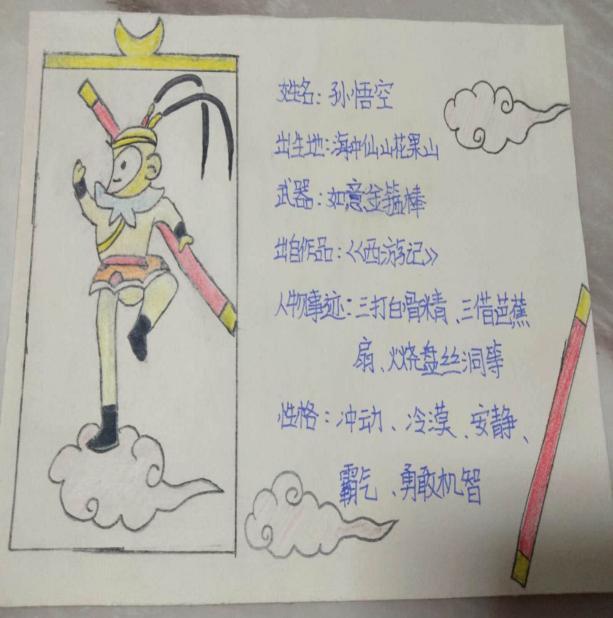 姓名：孙悟空
出生地：海中仙山花果山
武器：如意金箍棒
出自作品：《西游记》
人物事迹：三打白骨精、三借芭蕉
扇、火烧盘丝洞等
性格：冲动、冷漠、安静、
霸气、勇敢机智